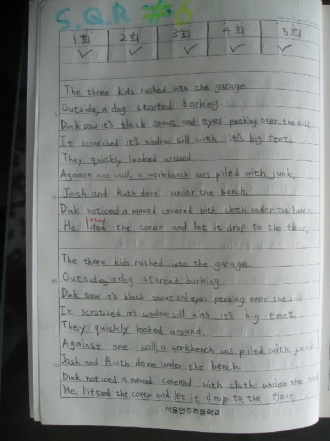 S.Q.R #6
1회 2회 3회 4회 5회
The three kids rushed into the garage.
Outside, a dog started barking.
Dink saw it's black snout and eyes peeking over the sill.
It scratched it's window sill with it's big feet.
They quickly looked around.
Against one wall, a workbench was piled with junk.
Josh and Ruth dove under the bench.
Dink noticed a mound covered with cloth under the bench.
He lifted the cover and let it drop to the floor.
The three kids rushed into the garage.
Outside, a dog started barking.
Dink saw it's black snout and eyes peeking over the sill.
It scratched it's window sill with it's big feet.
They quickly looked around.
Against one wall, a workbench was piled with junk.
Josh and Ruth dove under the bench.
Dink noticed a mound covered with cloth under the
He lifted the cover and let it drop to the floor.
서울언주초등학교